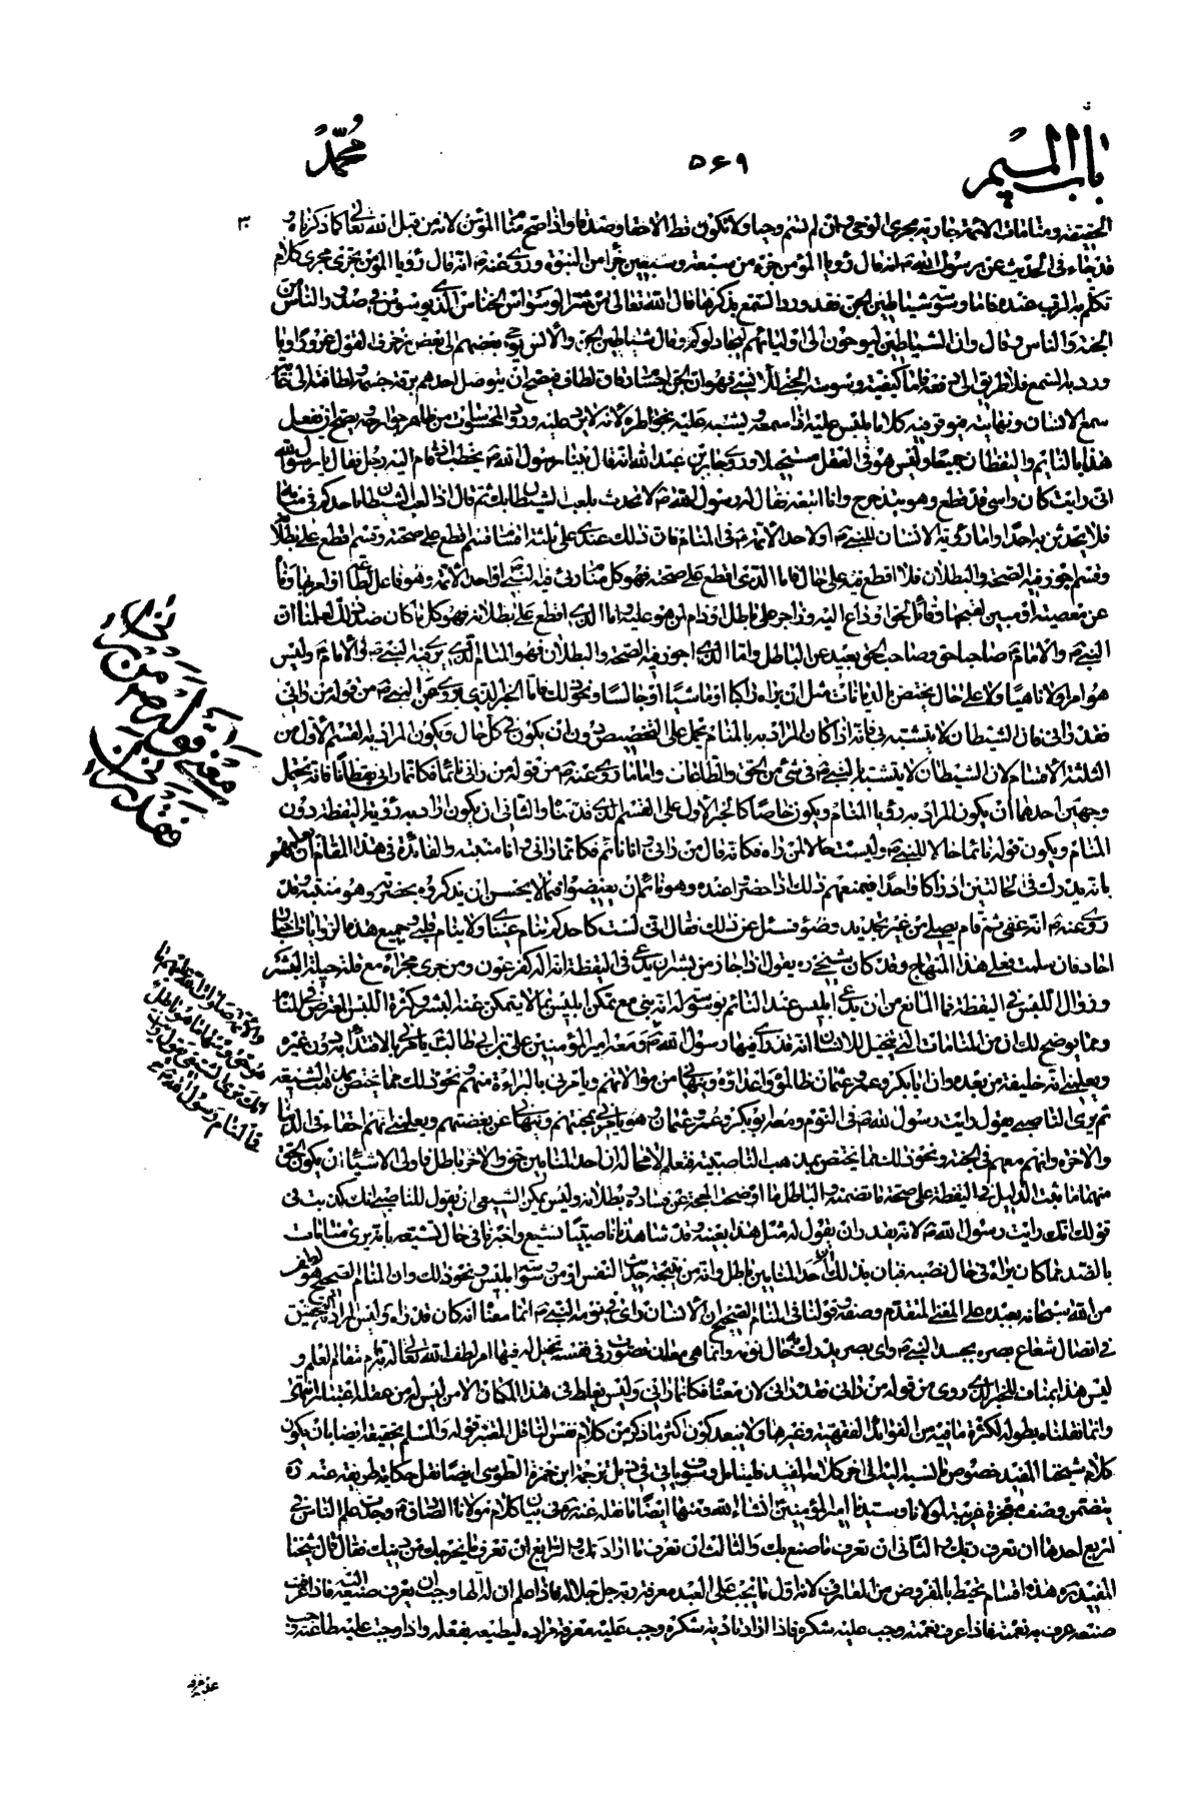 باب الميم
٥٦٩
محمّد
الحقيقة ومنامات الائمة جارية مجرى الوحى وان لم تسم وحيا ولا تكون قط الا حقا وصدقا واذا صح منام المؤمن لانه من قبل الله تعالى كما ذكرناه و
قد جاء فى الحديث عن رسول الله ص انه قال رؤيا المؤمن جزء من سبعة وسبعين جزءا من النبوة وروى عنه ص انه قال رؤيا المؤمن تجرى مجرى كلام
تكلم به الرب عنده فاما وسوسة شياطين الجن فقد ورد السمع بذكرها قال الله تعالى من شر الوسواس الخناس الذى يوسوس فى صدور الناس من
الجنة والناس وقال وان الشياطين ليوحون الى اوليائهم ليجادلوكم وقال شياطين الجن والانس يوحى بعضهم الى بعض زخرف القول غرورا وما
ورد به السمع فلا طريق الى دفعه فاما كيفية وسوسة الجنى للانسى فهو ان الجن اجسام رقاق لطاف فيصح ان يتوصل احدهم برقة جسمه ولطافته الى غاية
سمع الانسان ونهايته فيوقر فيه كلاما يلبس عليه اذا سمعه ويشتبه عليه بخواطره لانه لا يرد عليه ورود المحسوسات من ظاهر جوارحه ويصح ان يفعل
هذا بالنائم واليقظان جميعا وليس هو فى العقل مستحيلا وروى جابر بن عبد الله انه قال بينا رسول الله ص يخطب اذ قام اليه رجل فقال يا رسول الله
انى رايت كان راسى قد قطع وهو يتدحرج وانا اتبعه فقال له رسول الله ص لا تحدث بلعب الشيطان بك ثم قال اذا لعب الشيطان باحدكم فى منامه
فلا يحدثن به احدا واما رؤية الانسان للنبى ص او لاحد الائمة ع فى المنام فان ذلك عندى على ثلثة اقسام قسم اقطع على صحته وقسم اقطع على بطلانه
وقسم اجوز فيه الصحة والبطلان فلا اقطع فيه على حال فاما الذى اقطع على صحته فهو كل منام رئى فيه النبى ص او احد الائمة ع وهو فاعل لطاعة او امر بها وناه
عن معصية او مبين لقبحها وقائل لحق وداع اليه وزاجر على باطل او ذام لمن هو عليه واما الذى اقطع على بطلانه فهو كل ما كان ضد ذلك لعلمنا ان
النبى ص والامام ع صاحبا حق وصاحب الحق بعيد عن الباطل واما الذى اجوز فيه الصحة والبطلان فهو المنام الذى يرى فيه النبى ص او الامام ع وليس
هو امرا ولا ناهيا ولا على حال يختص بالديانات مثل ان يراه راكبا او ماشيا او جالسا ونحو ذلك فاما الخبر الذى يروى عن النبى ص من قوله من رانى
فقد رانى فان الشيطان لا يتشبه بى فانه اذا كان المراد به بالمنام يحمل على التخصيص دون ان يكون فى كل حال ويكون المراد به القسم الاول من
الثلثة الاقسام لان الشيطان لا يتشبه بالنبى ص فى شئ من الحق والطاعات واما ما روى عنه ص من قوله من رانى نائما فكانما رانى يقظانا فانه يحتمل
وجهين احدهما ان يكون المراد به رؤيا المنام ويكون خاصا كالخبر الاول على القسم الذى قدمناه والثانى ان يكون اراد به رؤية اليقظة دون
المنام ويكون قوله نائما حالا للنبى ص وليست حالا لمن راه فكانه قال من رانى وانا نائم فكانما رانى وانا منتبه والفائدة فى هذا المقام ان يعلمهم
بانه يدرك فى الحالتين ادراكا واحدا فيمنعهم ذلك اذا حضروا عنده وهو نائم ان يفيضوا فيما لا يحسن ان يذكروه بحضرته وهو منتبه وقد
روى عنه ص انه غفى ثم قام يصلى من غير تجديد وضوء فسئل عن ذلك فقال انى لست كاحدكم تنام عيناى ولا ينام قلبى وجميع هذه الروايات اخبار
احاد فان سلمت فعلى هذا المنهاج وقد كان شيخى ره يقول اذا جاز من بشر ان يدعى فى اليقظة انه اله كفرعون ومن جرى مجراه مع قلة حيلة البشر
وزوال اللبس فى اليقظة فما المانع من ان يدعى ابليس عند النائم بوسوسته له انه نبى مع تمكن ابليس بما لا يتمكن عنه البشر وكثرة اللبس المعترض فى المنام
ومما يوضح لك ان من المنامات التى يتخيل للانسان انه قد راى فيها رسول الله ص ومعه امير المؤمنين على بن ابى طالب ع يامرنى بالاقتداء به دون غيره
ويعلمنى انه خليفته من بعده وان ابا بكر وعمر وعثمان ظالموه واعداؤه وينهانى من موالاتهم ويامرنى بالبراءة منهم ونحو ذلك مما يختص بمذهب الشيعة
ثم يرى الناصبى يقول رايت رسول الله ص فى النوم ومعه ابو بكر وعمر وعثمان وهو يامرنى بمحبتهم وينهانى عن بغضتهم ويعلمنى انهم خلفاءه فى الدنيا
والاخرة وانهم معهم فى الجنة ونحو ذلك مما يختص بمذهب الناصبية فنعلم لا محالة ان احد المنامين حق والاخر باطل فاولى الاشياء ان يكون الحق
منهما ما ثبت الدليل فى اليقظة على صحة ما تضمنه والباطل ما اوضحت الحجة عن فساده وبطلانه وليس يمكن الشيعى ان يقول للناصبى انك كذبت فى
قولك انك رايت رسول الله ص لانه يقدر ان يقول له مثل هذا بعينه وقد شاهدنا ناصبيا تشيع واخبرنا فى حال تشيعه بانه يرى منامات
بالضد مما كان يراه فى حال نصبه فبان بذلك ان احد المنامين باطل وانه من نتيجة حديث النفس او من وسوسة ابليس ونحو ذلك وان المنام الصحيح هو لطف
من الله سبحانه بعبده على المعنى المتقدم وصفه وقولنا فى المنام الصحيح ان الانسان راى فى نومه النبى ص انما معناه انه كان قد راه وليس المراد به التحقيق
فى اتصال شعاع بصره بجسد النبى ص واى بصر يدرك به حال نومه وانما هى معان تصورت فى نفسه تخيل له فيها امر لطف الله تعالى له به قام مقام العلم و
ليس هذا بمناف للخبر الذى روى من قوله من رانى فقد رانى لان معناه فكانما رانى وليس يغلط فى هذا المكان الا من ليس له من عقله اعتبار انتهى
وانما نقلناه بطوله لكثرة ما فيه من الفوائد الفقهية وغيرها ولا يبعد كون اكثر ما ذكر من كلام نفس الناقل المعتبر قوله والمسلم بحقيقة ايضا بان يكون
كلام شيخنا المفيد خصوص ما نسبه اليه الى اخر كلامه المفيد فليتامل وسوف ياتى فى ذيل ترجمة ابن حمزة الطوسى ايضا نقل حكاية طريفة عنه ره
يتضمن وصف معجزة غريبة لمولانا وسيدنا امير المؤمنين انشاء الله ومنها ايضا ما نقله عنه ره فى بيان كلام مولانا الصادق ع وجدت علم الناس فى
اربع احدها ان تعرف ربك والثانى ان تعرف ما صنع بك والثالث ان تعرف ما اراد منك والرابع ان تعرف ما يخرجك من دينك فقال قال شيخنا
المفيد ره هذه اقسام تحيط بالمفروض من المعارف لانه اول ما يجب على العبد معرفة ربه جل جلاله فاذا علم ان له الها وجب ان يعرف صنيعه اليه فاذا عرف
صنيعه عرف به نعمته فاذا عرف نعمته وجب عليه شكره فاذا اراد تادية شكره وجب عليه معرفة مراده ليطيعه بفعله واذا وجبت عليه طاعته وجب
معنى قوله ص من رانى فقد رانى